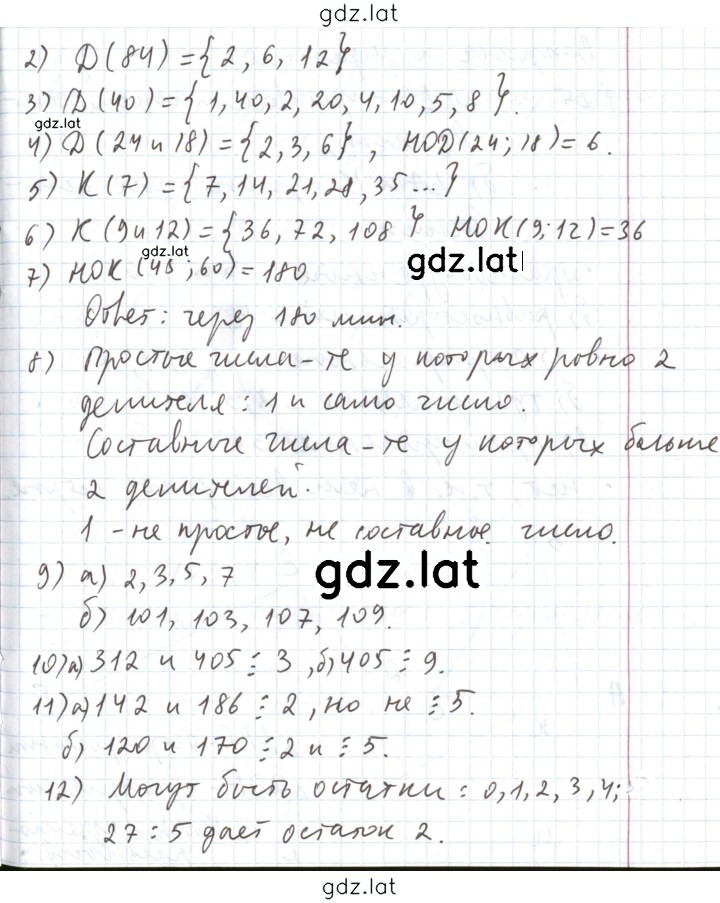 gdz.lat
2) Д(84) = {2, 6, 12}
3) Д(40) = {1, 40, 2, 20, 4, 10, 5, 8}.
gdz.lat
4) Д(24 и 18) = {2, 3, 6}, НОД(24; 18) = 6.
5) К(7) = {7, 14, 21, 28, 35...}
6) К(9 и 12) = {36, 72, 108} НОК(9; 12) = 36
gdz.lat
gdz.lat
7) НОК(45; 60) = 180
Ответ: через 180 мин.
8) Простые числа - те у которых ровно 2
делителя: 1 и само число.
Составные числа - те у которых больше
2 делителей.
1 - не простое, не составное число.
9) а) 2, 3, 5, 7
gdz.lat
б) 101, 103, 107, 109.
10) а) 312 и 405 ⋮ 3, б) 405 ⋮ 9.
11) а) 142 и 186 ⋮ 2, но не ⋮ 5.
б) 120 и 170 ⋮ 2 и ⋮ 5.
12) Могут быть остатки: 0, 1, 2, 3, 4;
27 : 5 дает остаток 2.
gdz.lat